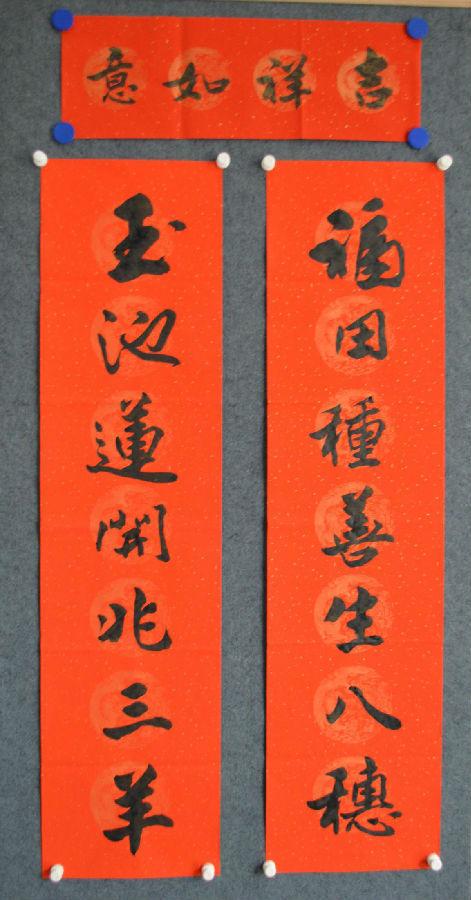 吉祥如意
福田種善生八穗
玉池蓮開兆三羊